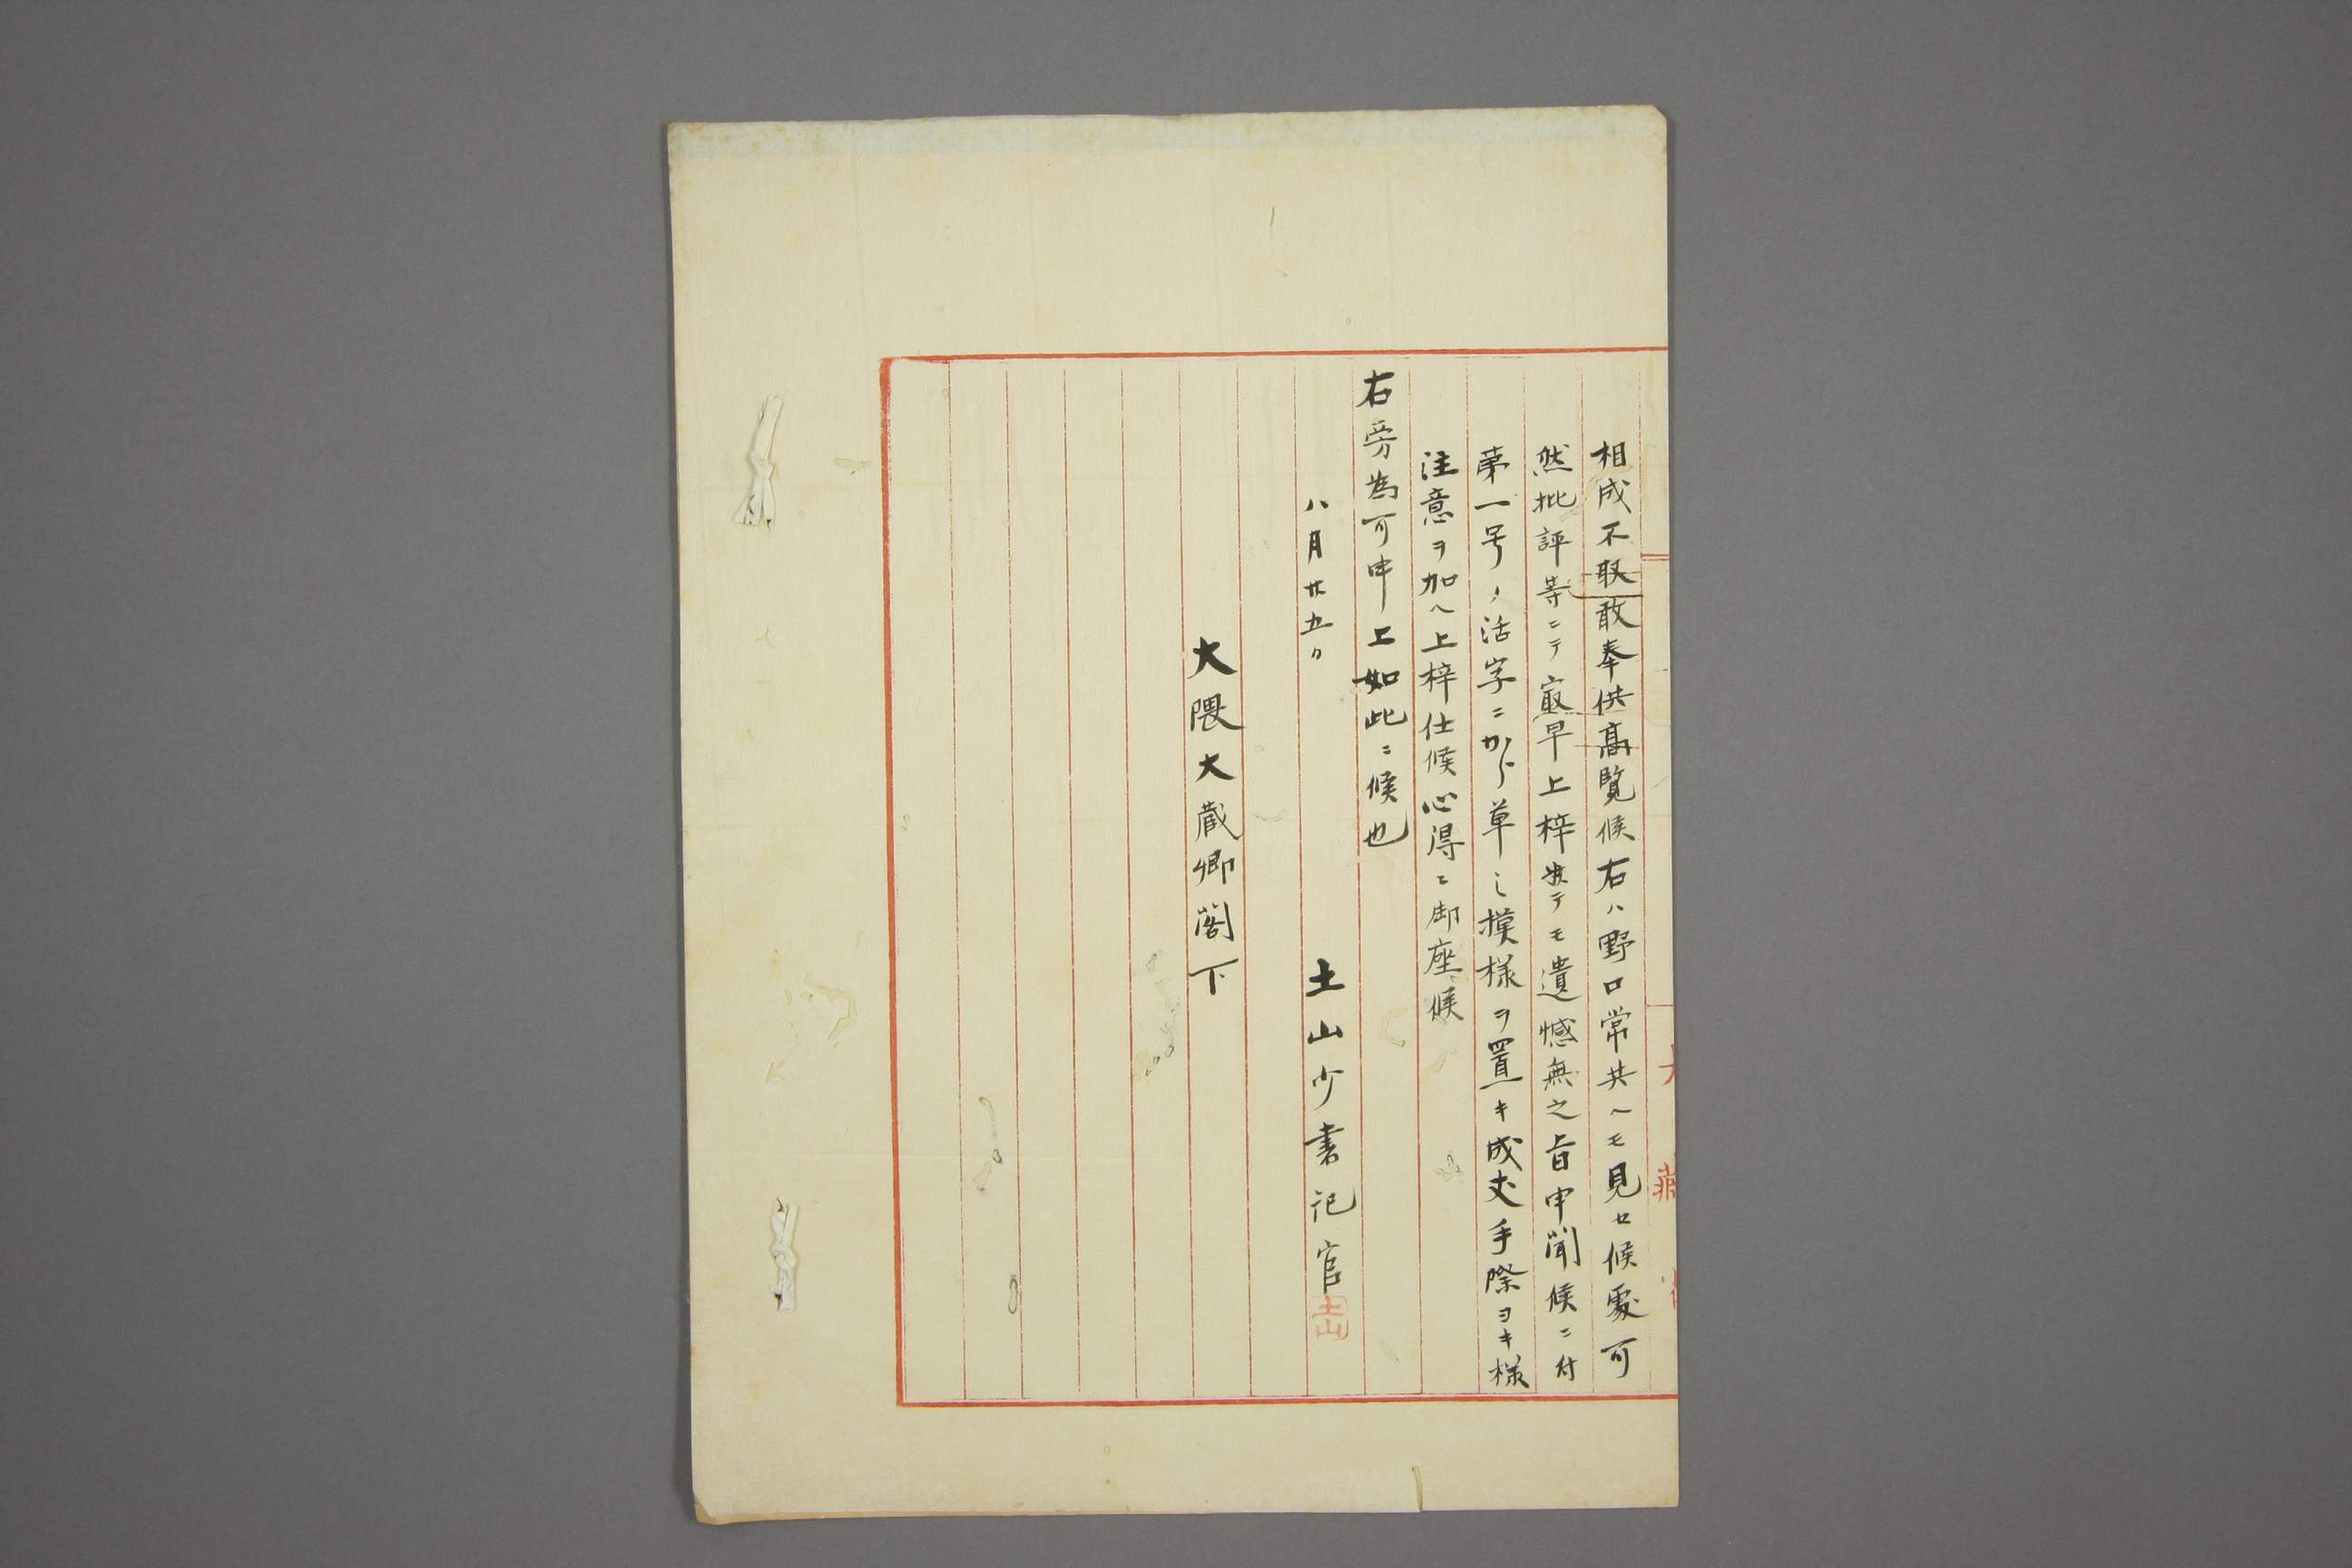 大藏省
相成不取敢奉供高覧候右ハ野口常共ヘモ見セ候處可
然批評等ニテ㝡早上梓テモ遺憾無之旨申聞候ニ付
第一号ノ活字ニ草模様ヲ置キ成丈手際ヨキ様
注意ヲ加ヘ上梓仕候心得ニ御座候
右旁為可申上如此ニ候也
八月廿五日 土山少書記官 土山
大隈大蔵卿閣下